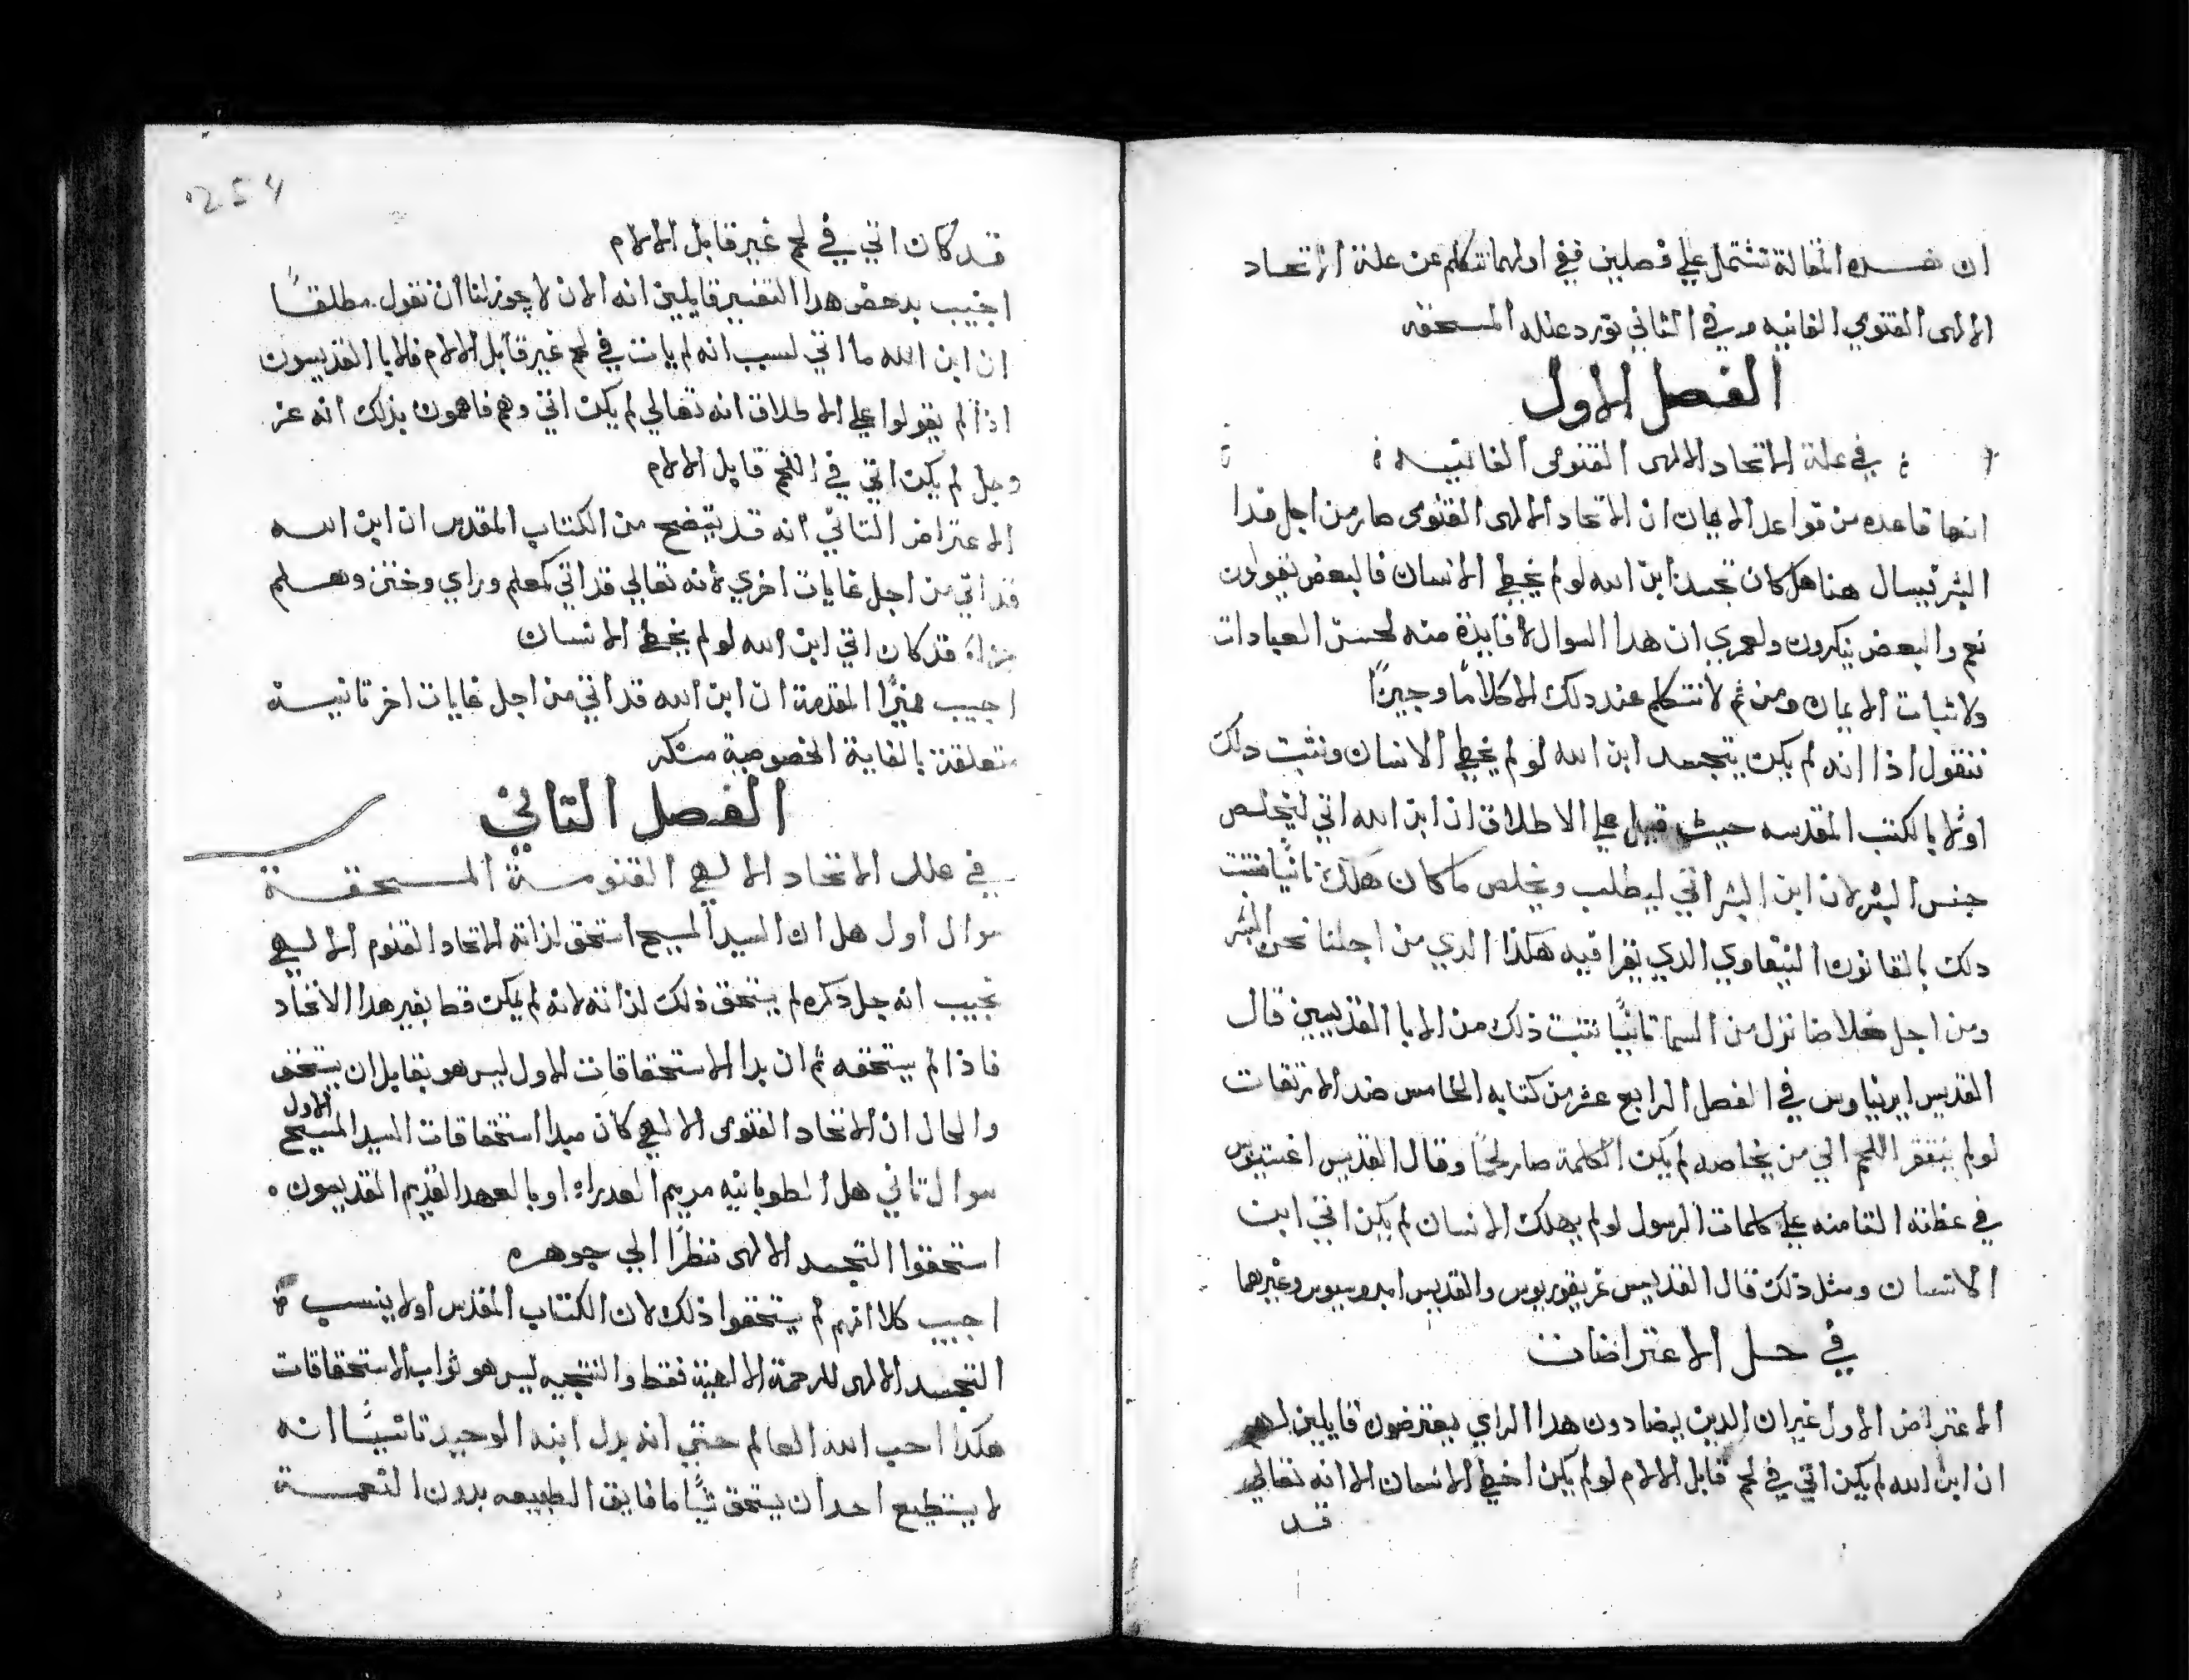 ان هذه المقالة تشتمل علي فصلين ففي اولهما نتكلم عن علة الاتحاد
الالهى القنومي الغائيه وفي الثاني نورد علله المستحقه
الفصل الاول
في علة الاتحاد الالهى القنومى الغائيه
انها قاعده من قواعد الايمان ان الاتحاد الالهى القنومى صار من اجل فدا
البشر يسال هنا هل كان تجسد ابن الله لو لم يخطِ الانسان فالبعض يقولون
نعم والبعض ينكرون ولعمري ان هدا السوال لا فايدة منه لحسن العبادات
ولا ثبات الايمان ومن ثم لا نتكلم عند دلك الا كلامًا وجيزًا
فنقول اذا انه لم يكن يتجسد ابن الله لو لم يخطِ الانسان ونثبت دلك
اولا بالكتب المقدسه حيث قيل علي الاطلاق ان ابن الله اتي ليخلص
جنس البشر لان ابن البشر اتي ليطلب ويخلص ما كان هلك ثانيًا نثبت
دلك بالقانون النيقاوي الدي يقرا فيه هكذا الدي من اجلنا نحن البشر
ومن اجل خلاصنا نزل من السما ثانيًا نثبت ذلك من الابا القديسين قال
القديس ايريناوس في الفصل الرابع عشر من كتابه الخامس ضد الارتقات
لو لم اللحم الي من يخلصه لم يكن الكلمة صار لحمًا وقال القديس اغستينوس
في عظته الثامنه علي كلمات الرسول لو لم يهلك الانسان لم يكن اتي ابن
الانسان ومثل ذلك قال القديس غريغوريوس والقديس امبروسيوس وغيرهما
في حل الاعتراضات
الاعتراض الاول غير ان الدين يضادون هدا الراي يعترضون قايلين
ان ابن الله لم يكن اتي في لحم قابل الالام لو لم يكن اخطِ الانسان الا انه تعالي
قد
254
قد كان اتي في لحم غير قابل الالام
اجيب بدحض هدا التفسير قايلين انه الان لا يجوز لنا ان نقول مطلقًا
ان ابن الله ما اتي لسبب انه لم يات في لحم غير قابل الالام فالابا القديسون
اذا لم يقولوا علي الاطلاق انه تعالي لم يكن اتي وهم فاهمون بذلك انه عز
وجل لم يكن اتي في اللحم قابل الالام
الاعتراض الثاني انه قد يتضح من الكتاب المقدس ان ابن الله
قد اتي من اجل غايات اخري لانه تعالي قد اتي كمعلم وراي وختن وهلم
جراء قد كان اتي ابن الله لو لم يخطِ الانسان
اجيب مميزًا المقدمة ان ابن الله قد اتي من اجل غايات اخر ثانيـة
متعلقة بالغاية الخصوصية
الفصل الثاني
في علل الاتحاد الالهي القنومية المستحقـة
سوال اول هل ان السيد المسيح استحق لذاته الاتحاد القنوم الالهي
نجيب انه جل ذكره لم يستحق ذلك لذاته لانه لم يكن قط بغير هدا الاتحاد
فاذا لم يستحقه ثم ان بدا الاستحقاقات الاول ليس هو بقابل ان يستحق
والحال ان الاتحاد القنومى الالهي كان مبدا استحقاقات السيد المسيح الاول
سوال ثاني هل الطوبانيه مريم العدراء او بالعهد القديم القديسون
استحقوا التجسد الالهى نظرًا الي جوهره
اجيب كلا انهم لم يستحقوا ذلك لان الكتاب المقدس اولا ينسب
التجسد الالهى للرحمة الالهية فقط والنتيجه ليس هو ثواب الاستحقاقات
هكدا احب الله العالم حتي انه بدل ابنه الوحيد ثانيًا انه
لا يستطيع احد ان يستحق شيًا ما فايق الطبيعه بدون النعمـة